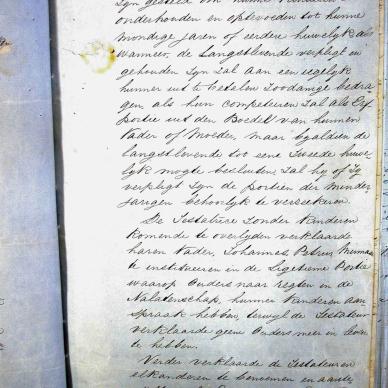 Zyn gesteld om hunne
onderhouden en opvoeden tot hunne
mondige jaren of eerdere huwelyk als
wanneer, de Langstlevende verpligt en
gehouden Zyn Zal aan een iegelyk
hunner uit te betalen Zoodanige bedra-
gen, als hun competeeren Zal als Erf
portie uit den Boedel van hunnen
Vader of Moeder, maar byaldien de
langstlevende tot eene Tweede huwe-
lyk mogte besluiten Zal hy of Zy
verpligt Zyn de portien der minder-
jarigen behoorlyk te verseekeren.
De Testatrice Zonder Kinderen
Komende te overlyden verklaarde
haren Vader, Johannes Petrus
te institueeren in de Ligitieme Portie
waarop Ouders naar regten in de
Nalatenschap, hunner Kinderen aan
Spraak hebben, terwyl de Testateur
verklaarde geene Ouders meer in leven
te hebben.
Verder verklaarde de Testateuren
elkanderen te benoemen en aante